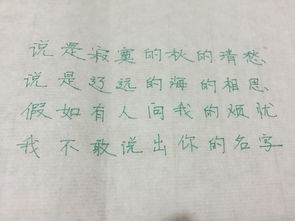 说是寂寞的秋的清愁
说是辽远的海的相思
假如有人问我的烦忧
我不敢说出你的名字